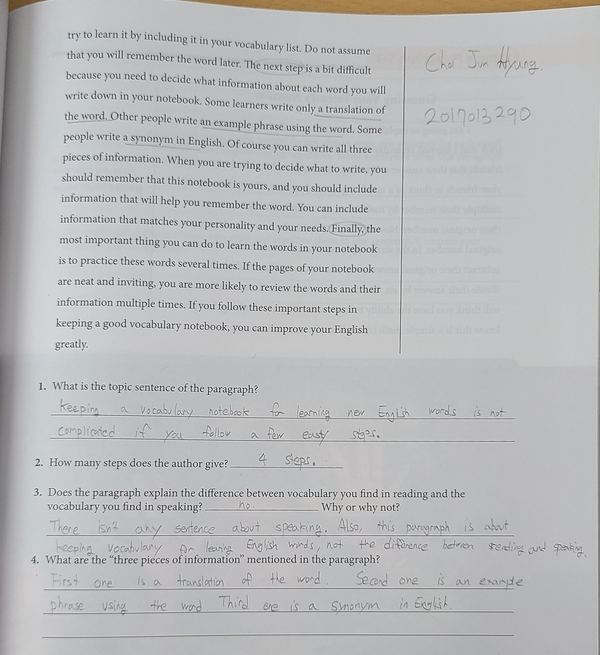 try to learn it by including it in your vocabulary list. Do not assume
that you will remember the word later. The next step is a bit difficult
because you need to decide what information about each word you will
write down in your notebook. Some learners write only a translation of
the word. Other people write an example phrase using the word. Some
people write a synonym in English. Of course you can write all three
pieces of information. When you are trying to decide what to write, you
should remember that this notebook is yours, and you should include
information that will help you remember the word. You can include
information that matches your personality and your needs. Finally, the
most important thing you can do to learn the words in your notebook
is to practice these words several times. If the pages of your notebook
are neat and inviting, you are more likely to review the words and their
information multiple times. If you follow these important steps in
keeping a good vocabulary notebook, you can improve your English
greatly.
Choi Jun Hyung.
2017013290
1. What is the topic sentence of the paragraph?
keeping a vocabulary notebook for learning new English words is not
complicated if you follow a few easty steps.
2. How many steps does the author give? 4 steps.
3. Does the paragraph explain the difference between vocabulary you find in reading and the
vocabulary you find in speaking? no. Why or why not?
There isn't any sentence about speaking. Also, this paragraph is about
keeping vocabulary for learing English words, not the difference between reading and speaking.
4. What are the "three pieces of information" mentioned in the paragraph?
First one is a translation of the word. Second one is an example
phrase using the word Third one is a synonym in English.